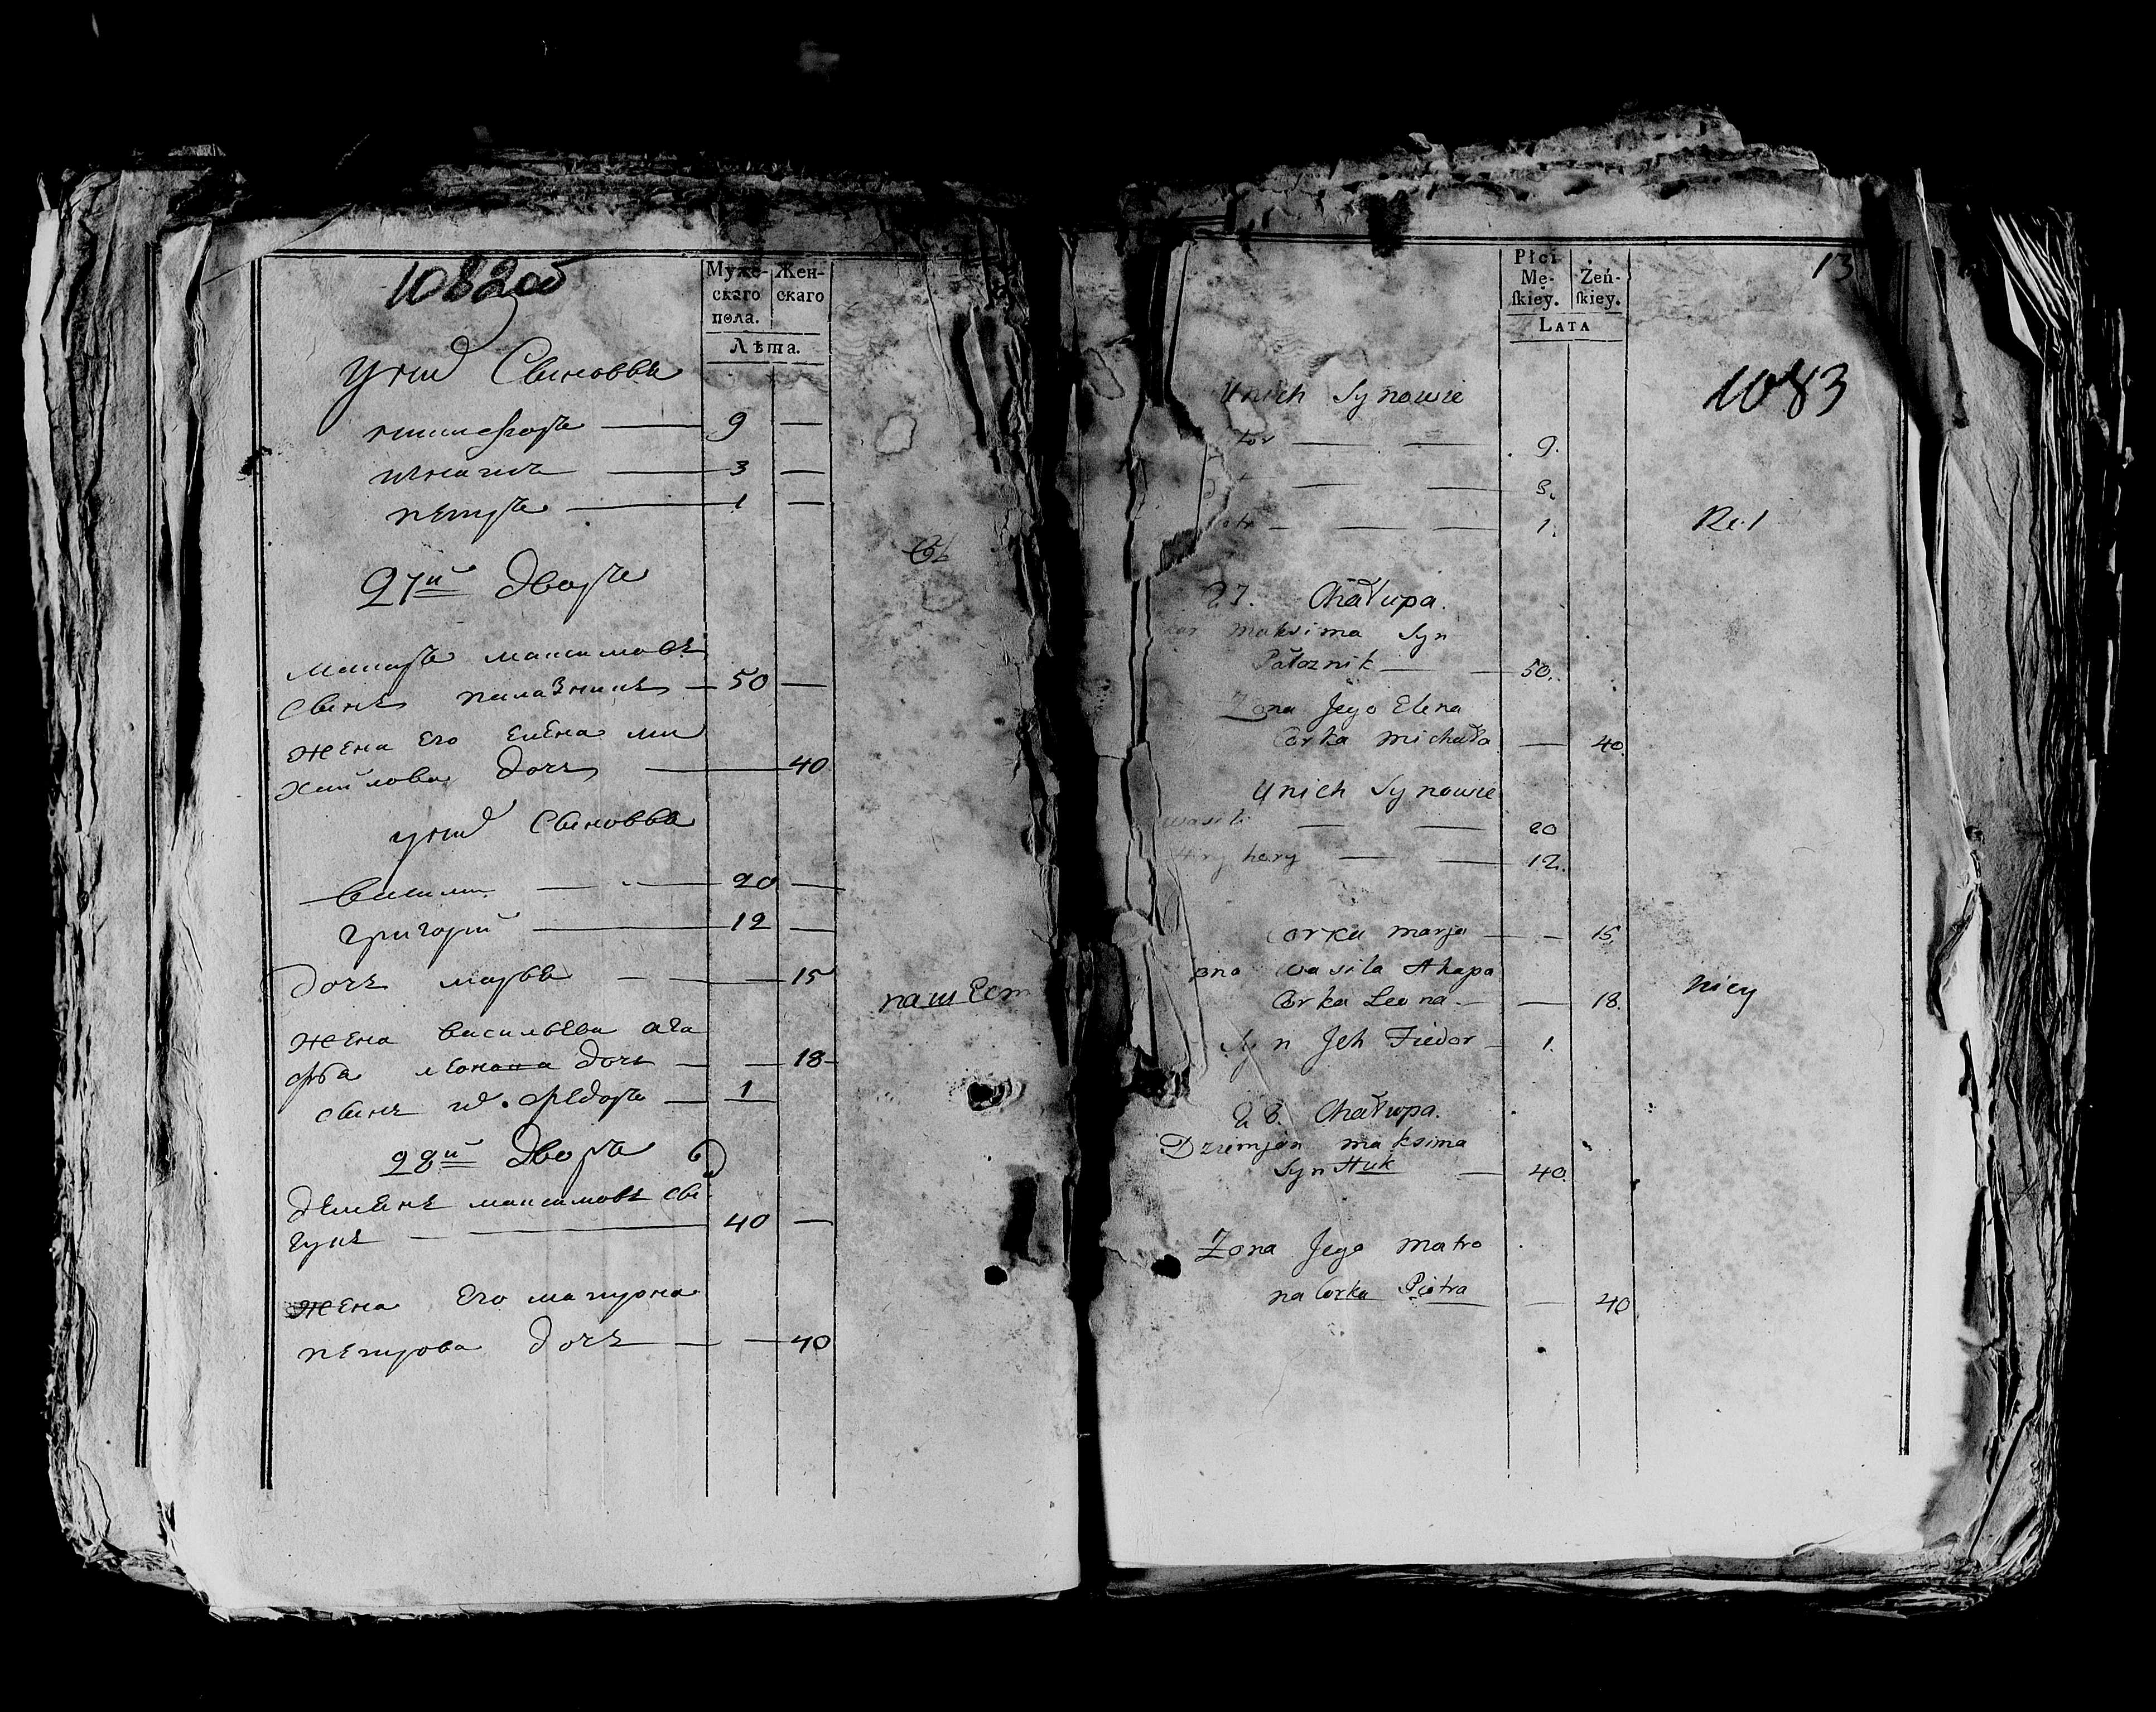 1082об
Муже-
скаго
пола.
Жен-
скаго
Лѣта.
у нид Сыновья
никифоръ — 9 —
игнатъ — 3 —
петръ — 1 —
27й Дворъ
макаръ максимовъ
сынъ палазникъ — 50 —
жена его елена ми
хайлова дочь — 40
у нид Сыновья
василий — 20 —
григорий — 12 —
дочь марья — — 15
жена васильева ага
фья леонова дочь — — 18
сынъ их федоръ — 1 —
28й Дворъ
демянъ максимовъ сы
гукъ — 40 —
жена его матрона
петрова дочь — — 40
Płci
Mę-
ſkiey.
Żeń-
ſkiey.
LATA
13
1083
U nich Synowie
for — — 9.
— — 3.
otr — — — 1.
27. Chałupa.
kar maksima Syn
Pałoznik — — 50.
Zona Jego Elena
Corka michała — 40.
U nich Synowie
wasil — — 20
Hryhory — — 12.
Corka marja — — 15
ona wasila Ahapa
Corka Leona — — 18.
Syn Jch Fiedor — 1.
28. Chałupa.
Dziemjan maksima
Syn Huk — 40.
Zona Jego matro
na Corka Piotra — 40